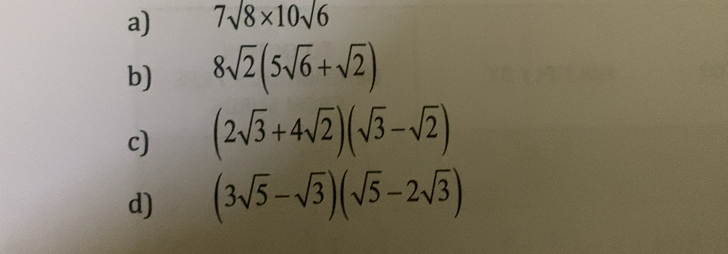 a) 7√8×10√6
b) 8√2(5√6+√2)
c) (2√3+4√2)(√3−√2)
d) (3√5−√3)(√5−2√3)